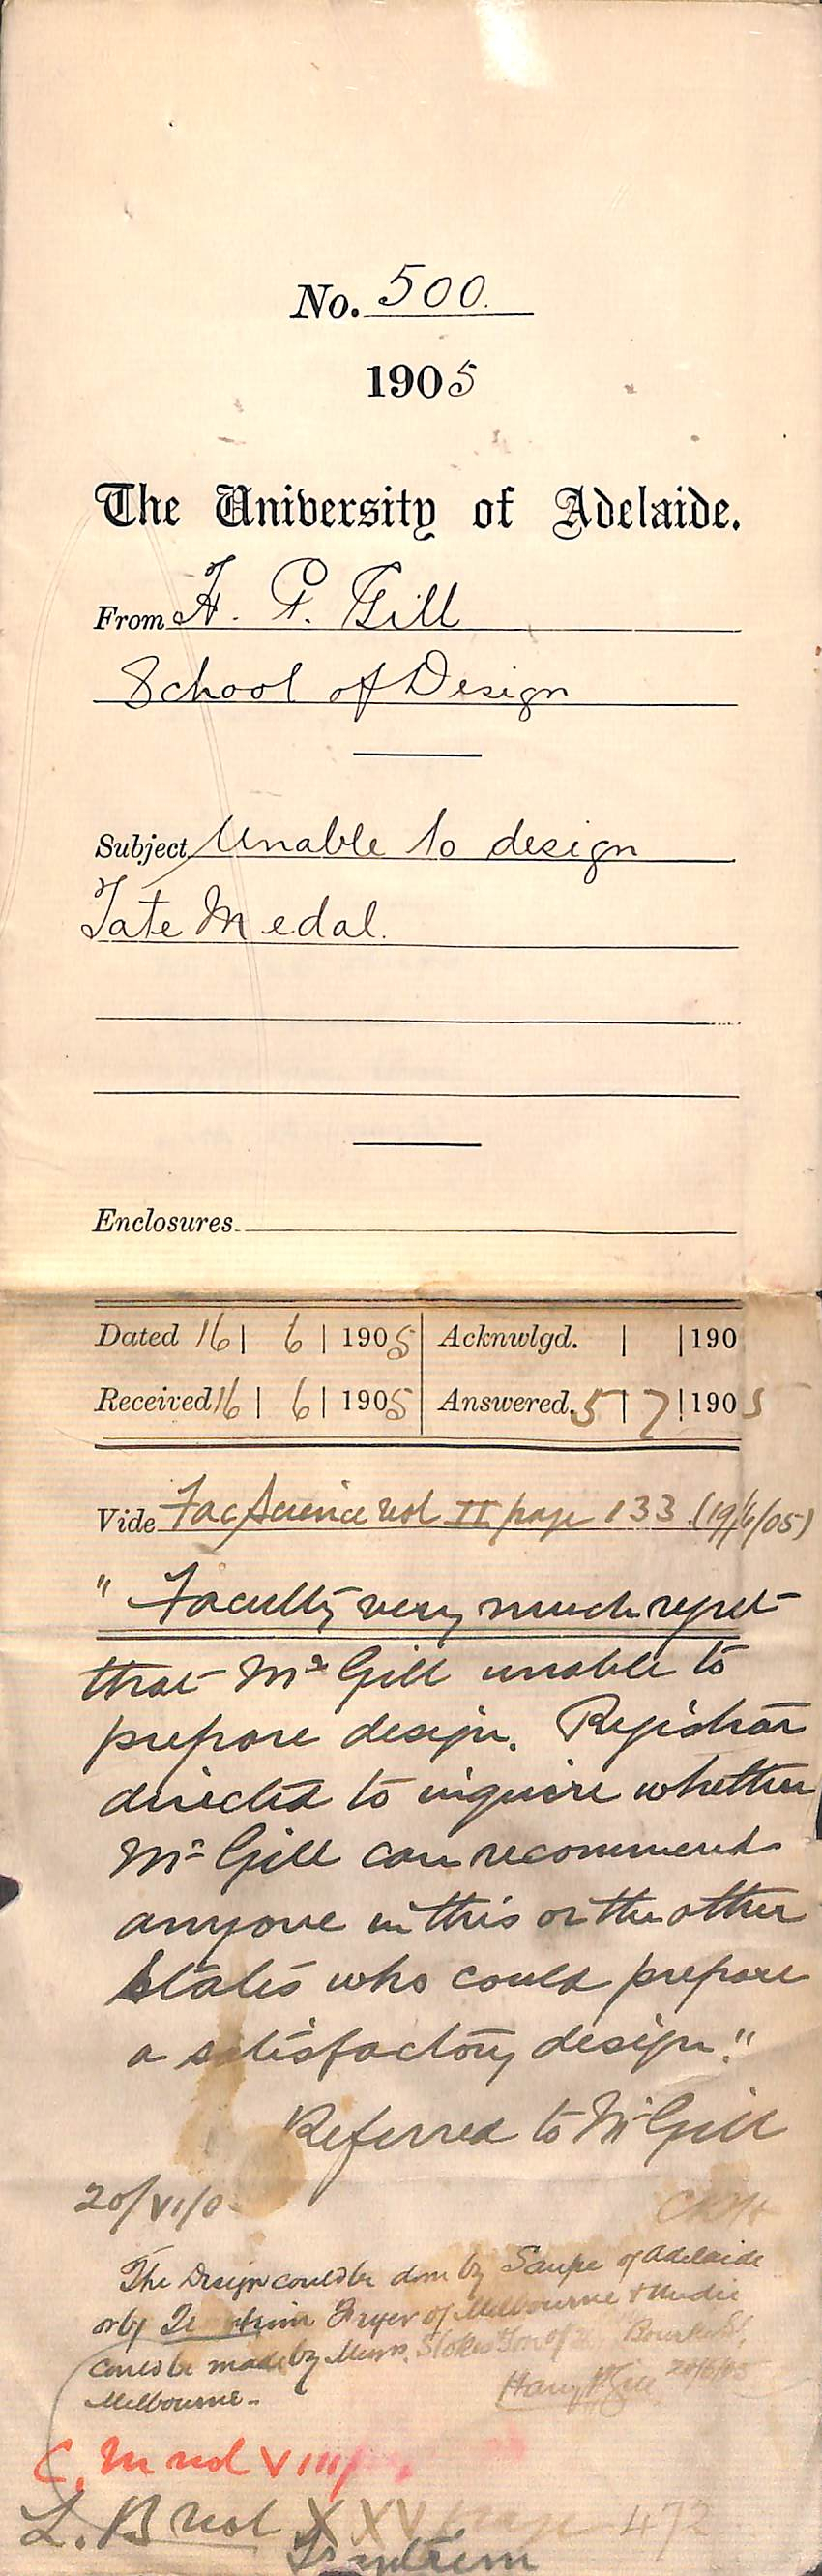 No. 500.
1905
The University of Adelaide.
From H. P. Gill
School of Design
Subject Unable to design
Tate Medal.
Enclosures
Dated 16 | 6 | 1905 Acknwlgd. | | 190
Received 16 | 6 | 1905 Answered. 5 | 7 | 1905
Vide Fac Science vol II page 133 (19/6/05)
" Faculty very much regret
that Mr Gill unable to
prepare design. Registrar
directed to inquire whether
Mr Gill can recommend
anyone in this or the other
States who could prepare
a satisfactory design."
Referred to Mr Gill
20/VI/0
The Design could be done by Saupe of Adelaide
or by Fryer of Melbourne &
could be made by Messrs. Stokes & Son of Bourke St.
Melbourne.- Harry P Gill 20/6/05
C. M vol VIII
L. B vol XXV page 472